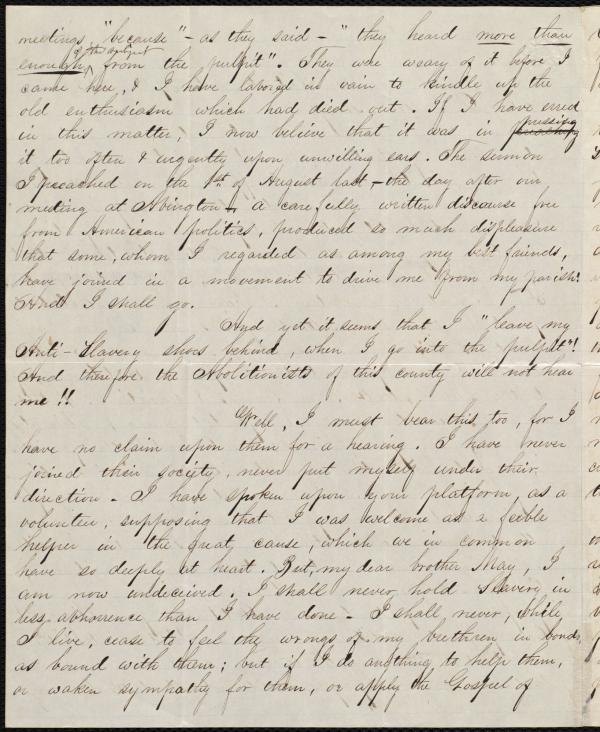 meetings, "because" - as they said - "they heard more than
of the subject
enough, from the pulpit". They were weary of it before I
came here, & I have labored in vain to kindle up the
old enthusiasm which had died out. If I have erred
in this matter, I now believe that it was in pressing
it too often & urgently upon unwilling ears. The sermon
I preached on the 1st of August last - the day after our
meeting at Abington - a carefully written discourse free
from American politics, produced so much displeasure
that some, whom I regarded as among my best friends,
have joined in a movement to drive me from my parish.
And I shall go.
And yet it seems that I "leave my
Anti-Slavery shoes behind, when I go into the pulpit"!
And therefore the Abolitionists of this county will not hear
me!!
Well, I must bear this, too, for I
have no claim upon them for a hearing. I have never
joined their society, never put myself under their
direction - I have spoken upon your platform, as a
volunteer, supposing that I was welcome as a feeble
helper in the great cause, which we in common
have so deeply at heart. But, my dear brother May, I
am now undeceived. I shall never hold Slavery in
less abhorrence than I have done - I shall never, while
I live, cease to feel the wrongs of my brethren in bonds,
as bound with them; but if I do anything to help them,
or waken sympathy for them, or apply the Gospel of